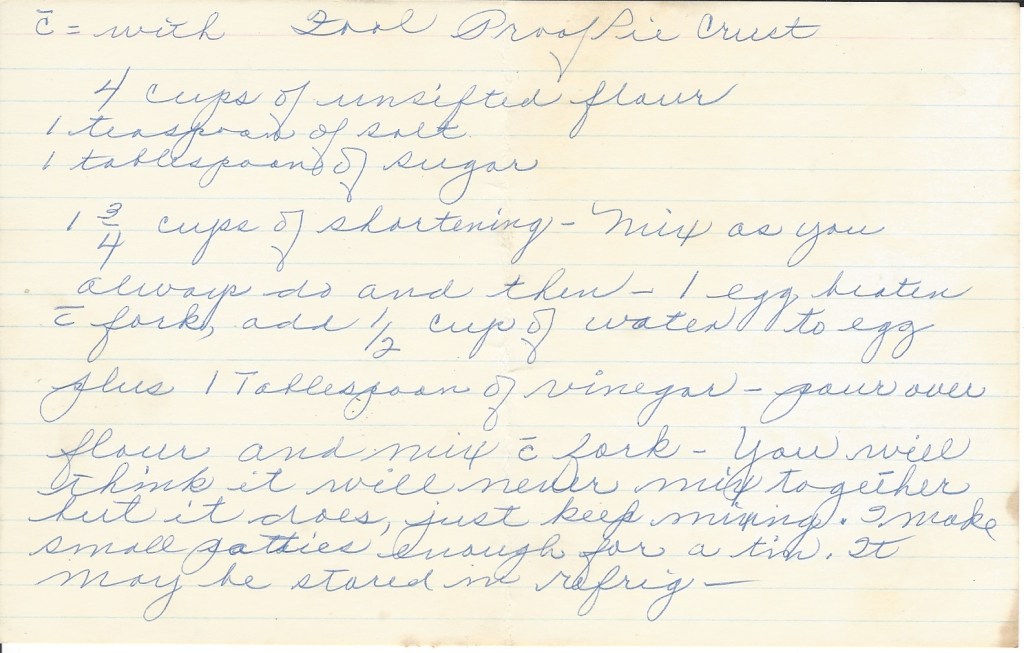 c̄ = with Fool Proof Pie Crust
4 cups of unsifted flour
1 teaspoon of salt
1 tablespoon of sugar
1 3/4 cups of shortening - Mix as you
always do and then - 1 egg, beaten
c̄ fork, add 1/2 cup of water to egg
plus 1 Tablespoon of vinegar - pour over
flour and mix c̄ fork - You will
think it will never mix together
but it does, just keep mixing. I make
small patties enough for a tin. It
may be stored in refrig -